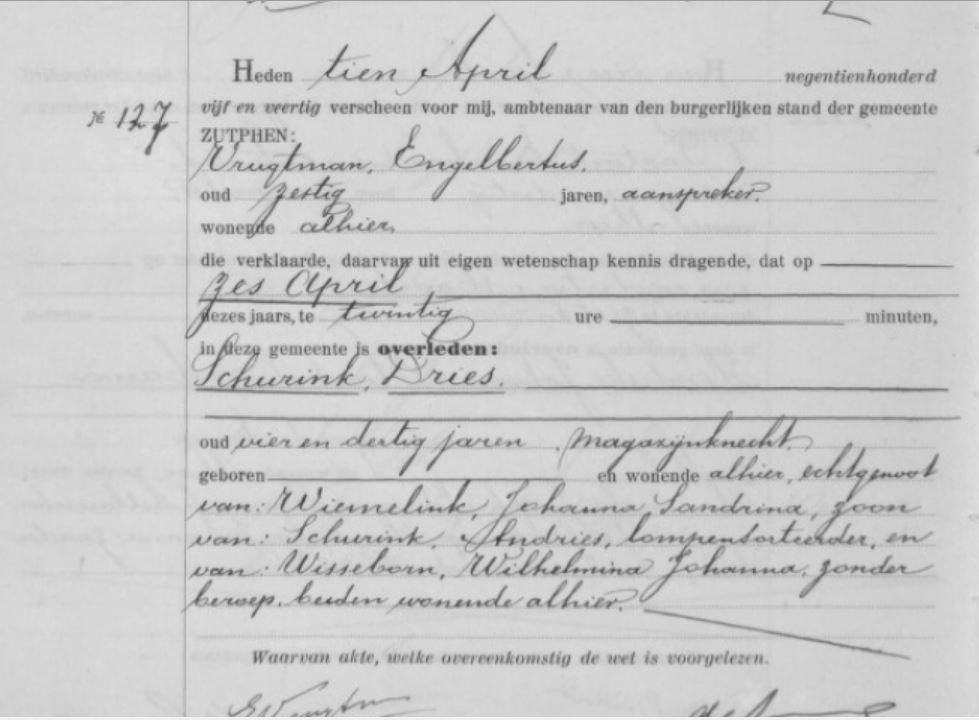 Heden tien April negentienhonderd
№ 127 vijf en veertig verscheen voor mij, ambtenaar van den burgerlijken stand der gemeente
ZUTPHEN:
Vrugtman, Engelbertus,
oud zestig jaren, aanspreker.
wonende alhier,
die verklaarde, daarvan uit eigen wetenschap kennis dragende, dat op
zes April
dezes jaars, te twintig ure minuten,
in deze gemeente is overleden:
Schurink, Dries.
oud vier en dertig jaren, magazijnknecht,
geboren en wonende alhier, echtgenoot
van: Wiemelink, Johanna Sandrina, zoon
van: Schurink, Andries, lompensorteerder, en
van: Wisseborn, Wilhelmina Johanna, zonder
beroep, beiden wonende alhier.
Waarvan akte, welke overeenkomstig de wet is voorgelezen.